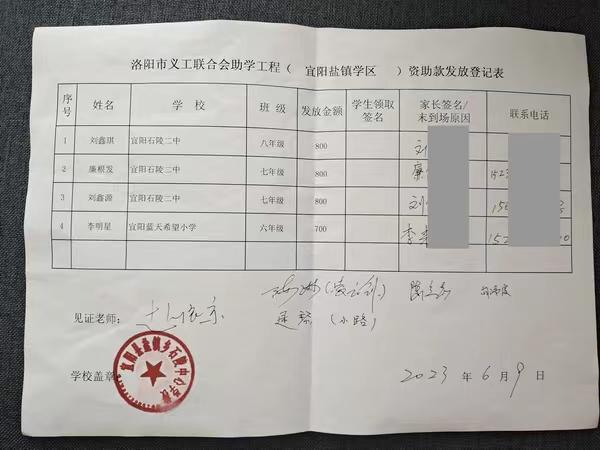 洛阳市义工联合会助学工程( 宜阳盐镇学区 )资助款发放登记表
序号 姓名 学 校 班 级 发放金额 学生领取签名 家长签名/未到场原因 联系电话
1 刘鑫琪 宜阳石陵二中 八年级 800 刘
2 廉根发 宜阳石陵二中 七年级 800 廉 152
3 刘鑫源 宜阳石陵二中 七年级 800 刘 15
4 李明星 宜阳蓝天希望小学 六年级 700 李 152 0
见证老师:
(小路)
学校盖章:
宜阳县盐镇乡石陵中心学校
2023 年 6 月 9 日